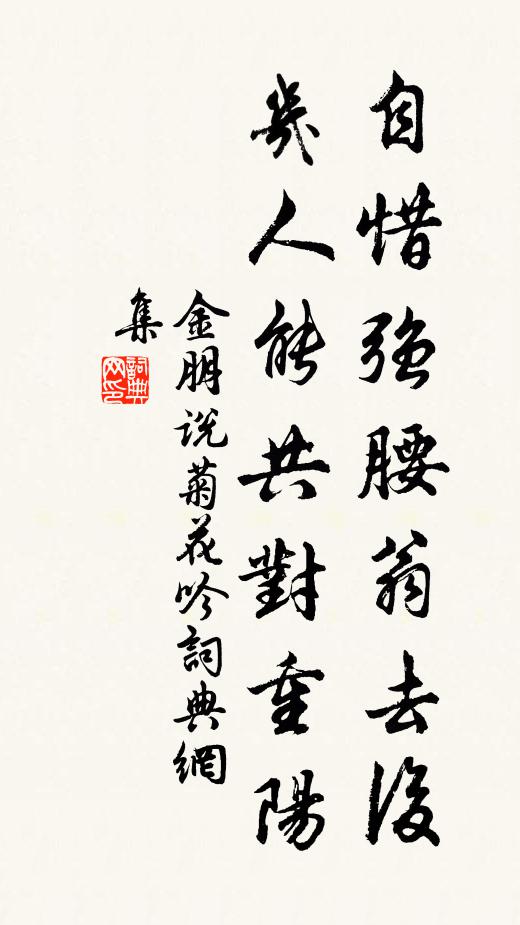 自惜強腰翁去後
幾人能共對重陽
金朋説菊花吟詞典網
集
詞典
网印